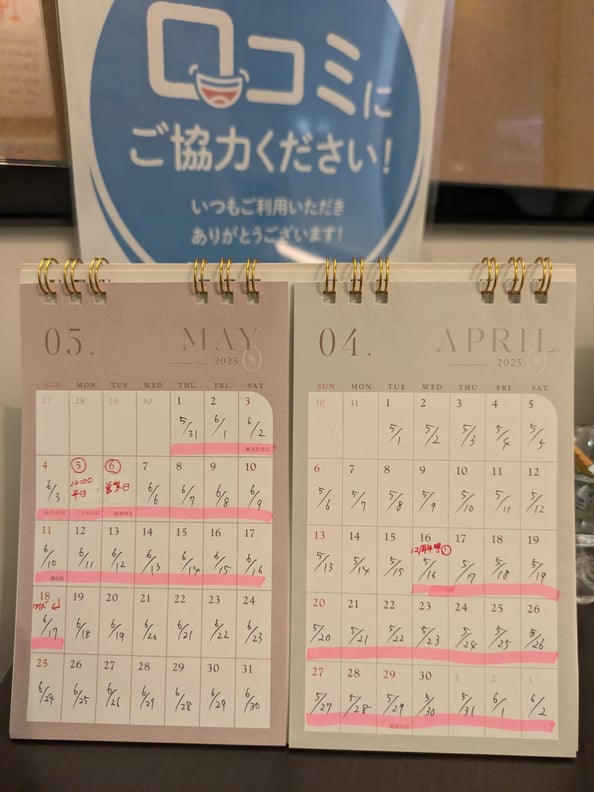 口コミに
ご協力ください!
いつもご利用いただき
ありがとうございます!
05.
MAY
2025
SUN MON TUE WED THU FRI SAT
27 28 29 30 1 2 3
5/31 6/1 6/2
憲法記念日
4 5 6 7 8 9 10
6/3 平日 営業日 6/6 6/7 6/8 6/9
みどりの日 こどもの日 振替休日
11 12 13 14 15 16 17
6/10 6/11 6/12 6/13 6/14 6/15 6/16
母の日
18 19 20 21 22 23 24
6/17 6/18 6/19 6/20 6/21 6/22 6/23
25 26 27 28 29 30 31
6/24 6/25 6/26 6/27 6/28 6/29 6/30
04.
APRIL
2025
SUN MON TUE WED THU FRI SAT
30 31 1 2 3 4 5
5/1 5/2 5/3 5/4 5/5
6 7 8 9 10 11 12
5/6 5/7 5/8 5/9 5/10 5/11 5/12
13 14 15 16 17 18 19
5/13 5/14 5/15 5/16 5/17 5/18 5/19
20 21 22 23 24 25 26
5/20 5/21 5/22 5/23 5/24 5/25 5/26
27 28 29 30 1 2 3
5/27 5/28 5/29 5/30 5/31 6/1 6/2
昭和の日